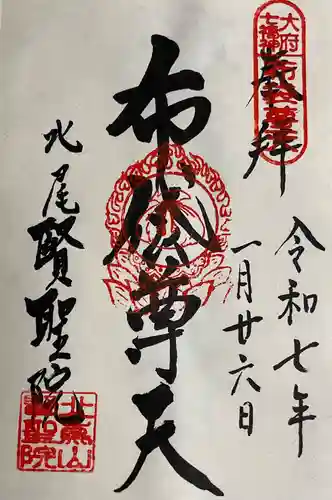 大府
七福神
奉拝
令和七年
一月廿六日
布袋尊天
北尾賢聖院
賢聖院